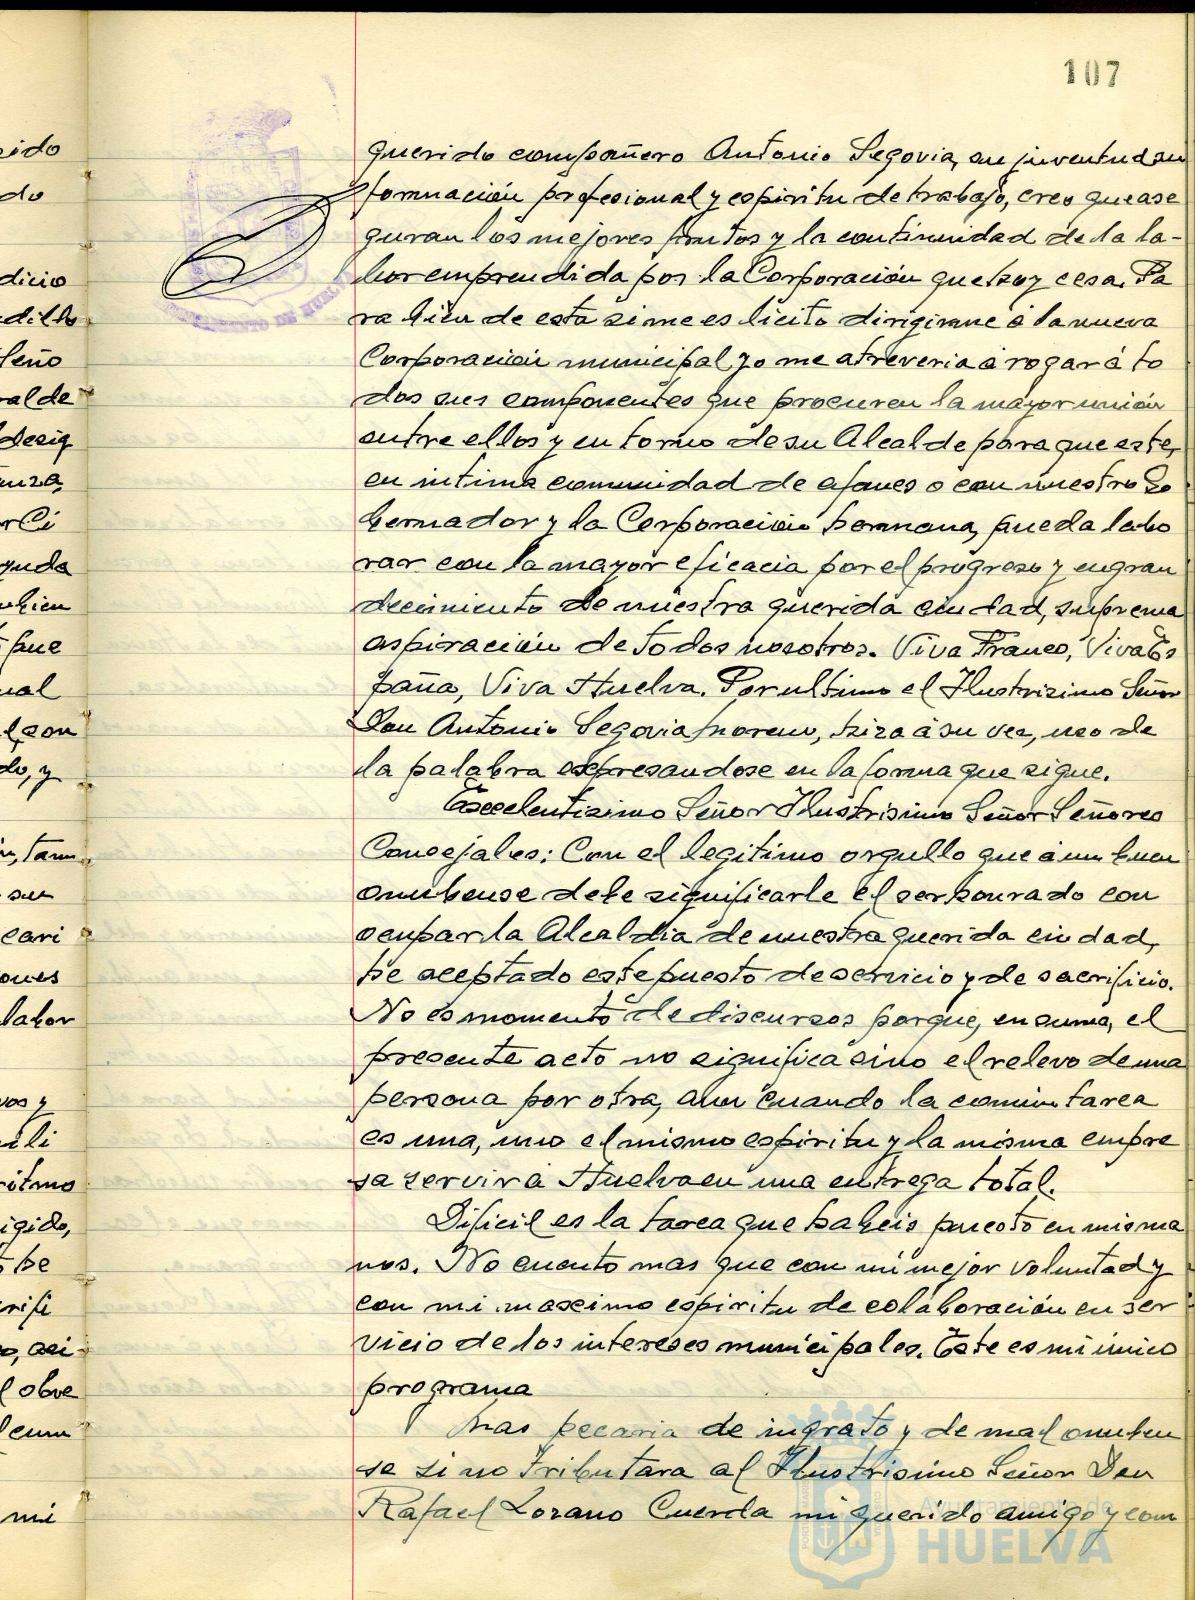 107
querido compañero Antonio Segovia, su juventud su
formación profesional y espiritu de trabajo, creo que ase
guran los mejores frutos y la continuidad de la la-
bor emprendida por la Corporación que hoy cesa. Pa
ra bien de esta si me es licito dirigirme á la nueva
Corporación municipal yo me atreveria á rogar á to
dos sus componentes que procuren la mayor unión
entre ellos y en torno de su Alcalde para que este,
en intima comunidad de afanes o con nuestro Go
bernador y la Corporación hermana, pueda labo
rar con la mayor eficacia por el progreso y engran
decimiento de nuestra querida ciudad, suprema
aspiración de todos nosotros. Viva Franco, Viva Es
paña, Viva Huelva. Por ultimo el Ilustrisimo Señor
Don Antonio Segovia Moreno, hizo á su vez, uso de
la palabra expresandose en la forma que sigue.
Excelentisimo Señor Ilustrisimo Señor Señores
Concejales: Con el legitimo orgullo que á un buen
onubense debe significarle el ser honrado con
ocupar la Alcaldia de nuestra querida ciudad,
he aceptado este puesto de servicio y de sacrificio.
No es momento de discursos porque, en suma, el
presente acto no significa sino el relevo de una
persona por otra, aun cuando la comun tarea
es una, uno el mismo espiritu y la misma empre
sa servir á Huelva en una entrega total.
Dificil es la tarea que habeis puesto en mis ma
nos. No cuento mas que con mi mejor voluntad y
con mi maximo espiritu de colaboración en ser
vicio de los intereses municipales. Este es mi unico
programa
Mas pecaria de ingrato y de mal onuben
se si no tributara al Ilustrisimo Señor Don
Rafael Lozano Cuerda mi querido amigo y com
Ayuntamiento de
HUELVA